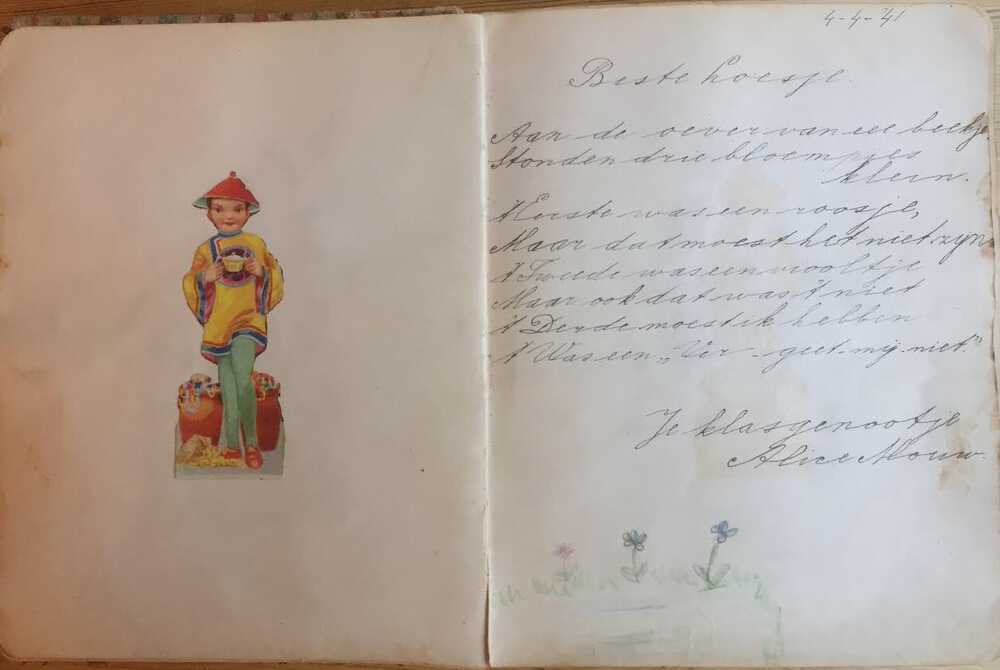 4-4-'41
Beste Loesje.
Aan de oever van een beekje
Stonden drie bloempjes
klein.
't Eerste was een roosje,
Maar dat moest het niet zijn
't Tweede was een viooltje
Maar ook dat was 't niet
't Derde moest ik hebben
't Was een „Ver-geet-mij-niet."
Je klasgenootje
Alice Mouw.